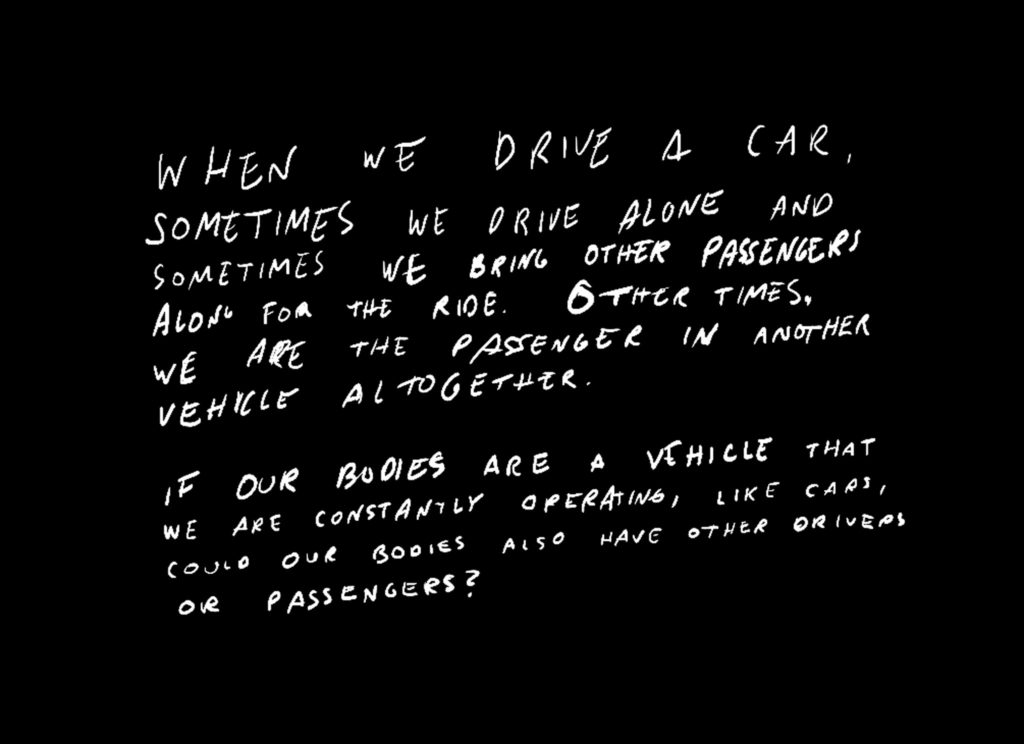 WHEN WE DRIVE A CAR,
SOMETIMES WE DRIVE ALONE AND
SOMETIMES WE BRING OTHER PASSENGERS
ALONG FOR THE RIDE. OTHER TIMES,
WE ARE THE PASSENGER IN ANOTHER
VEHICLE ALTOGETHER.
IF OUR BODIES ARE A VEHICLE THAT
WE ARE CONSTANTLY OPERATING, LIKE CARS,
COULD OUR BODIES ALSO HAVE OTHER DRIVERS
OR PASSENGERS?